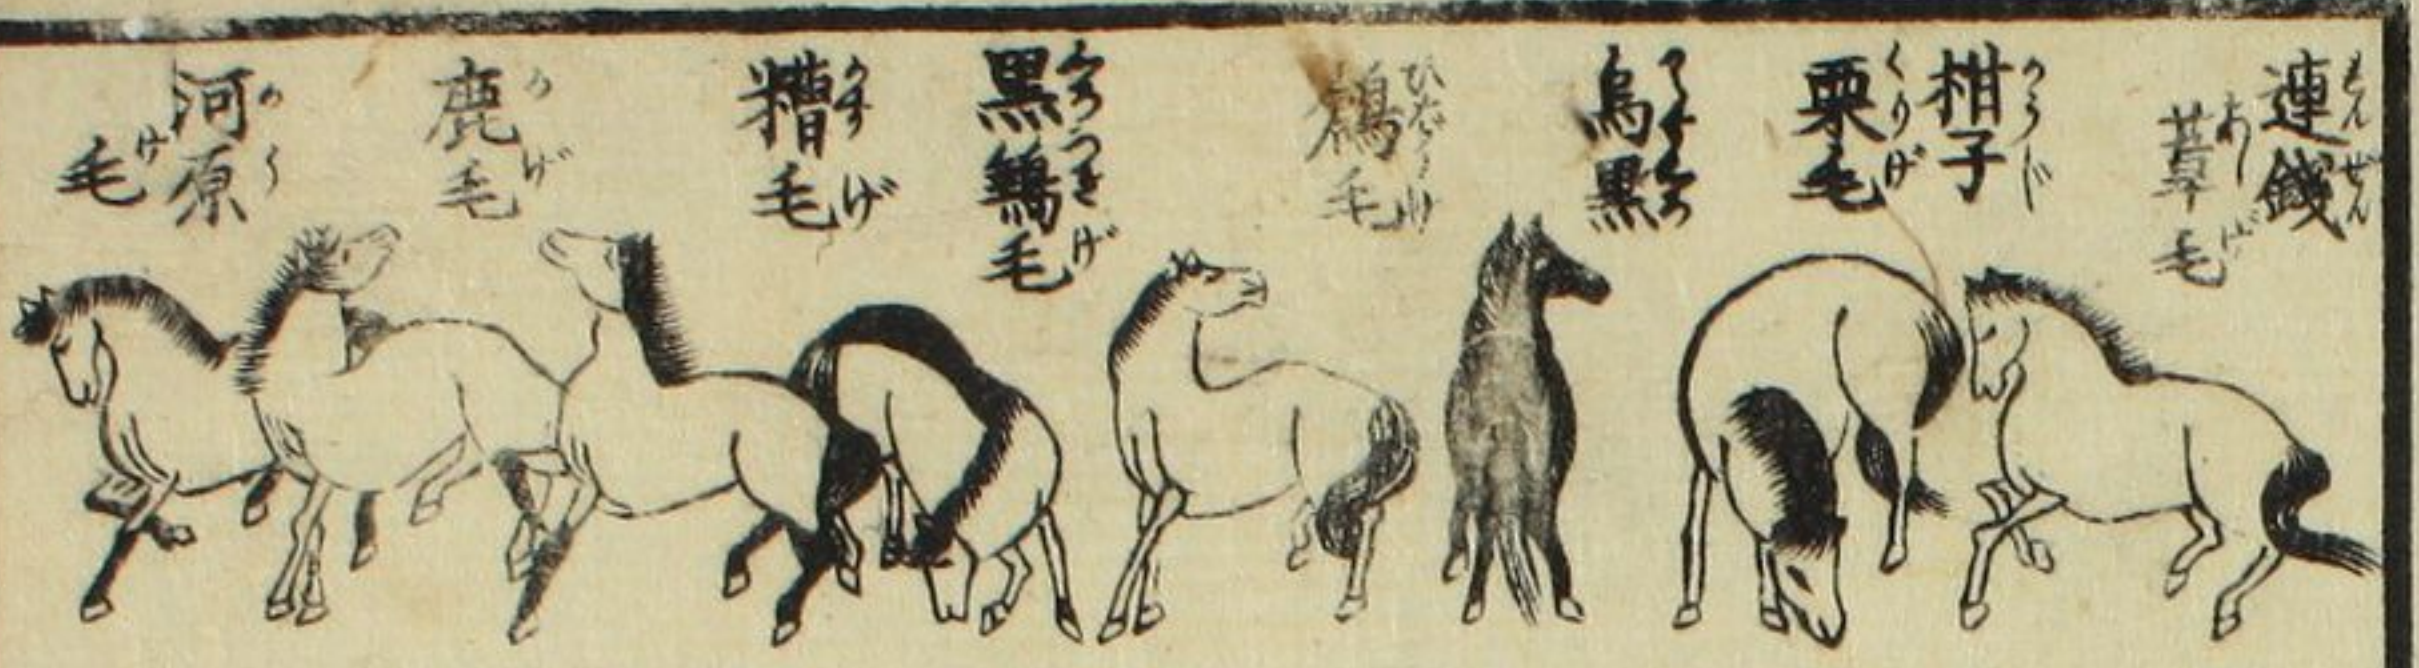 連錢
れんぜん
葦毛
あしげ
柑子
かうじ
栗毛
くりげ
烏黒
毛
ひばりげ
黒
毛
くろつきげ
糟毛
かすげ
鹿毛
かげ
河原
かはら
毛
げ